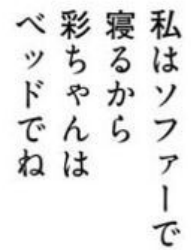 私はソファーで
寝るから
彩ちゃんは
ベッドでね